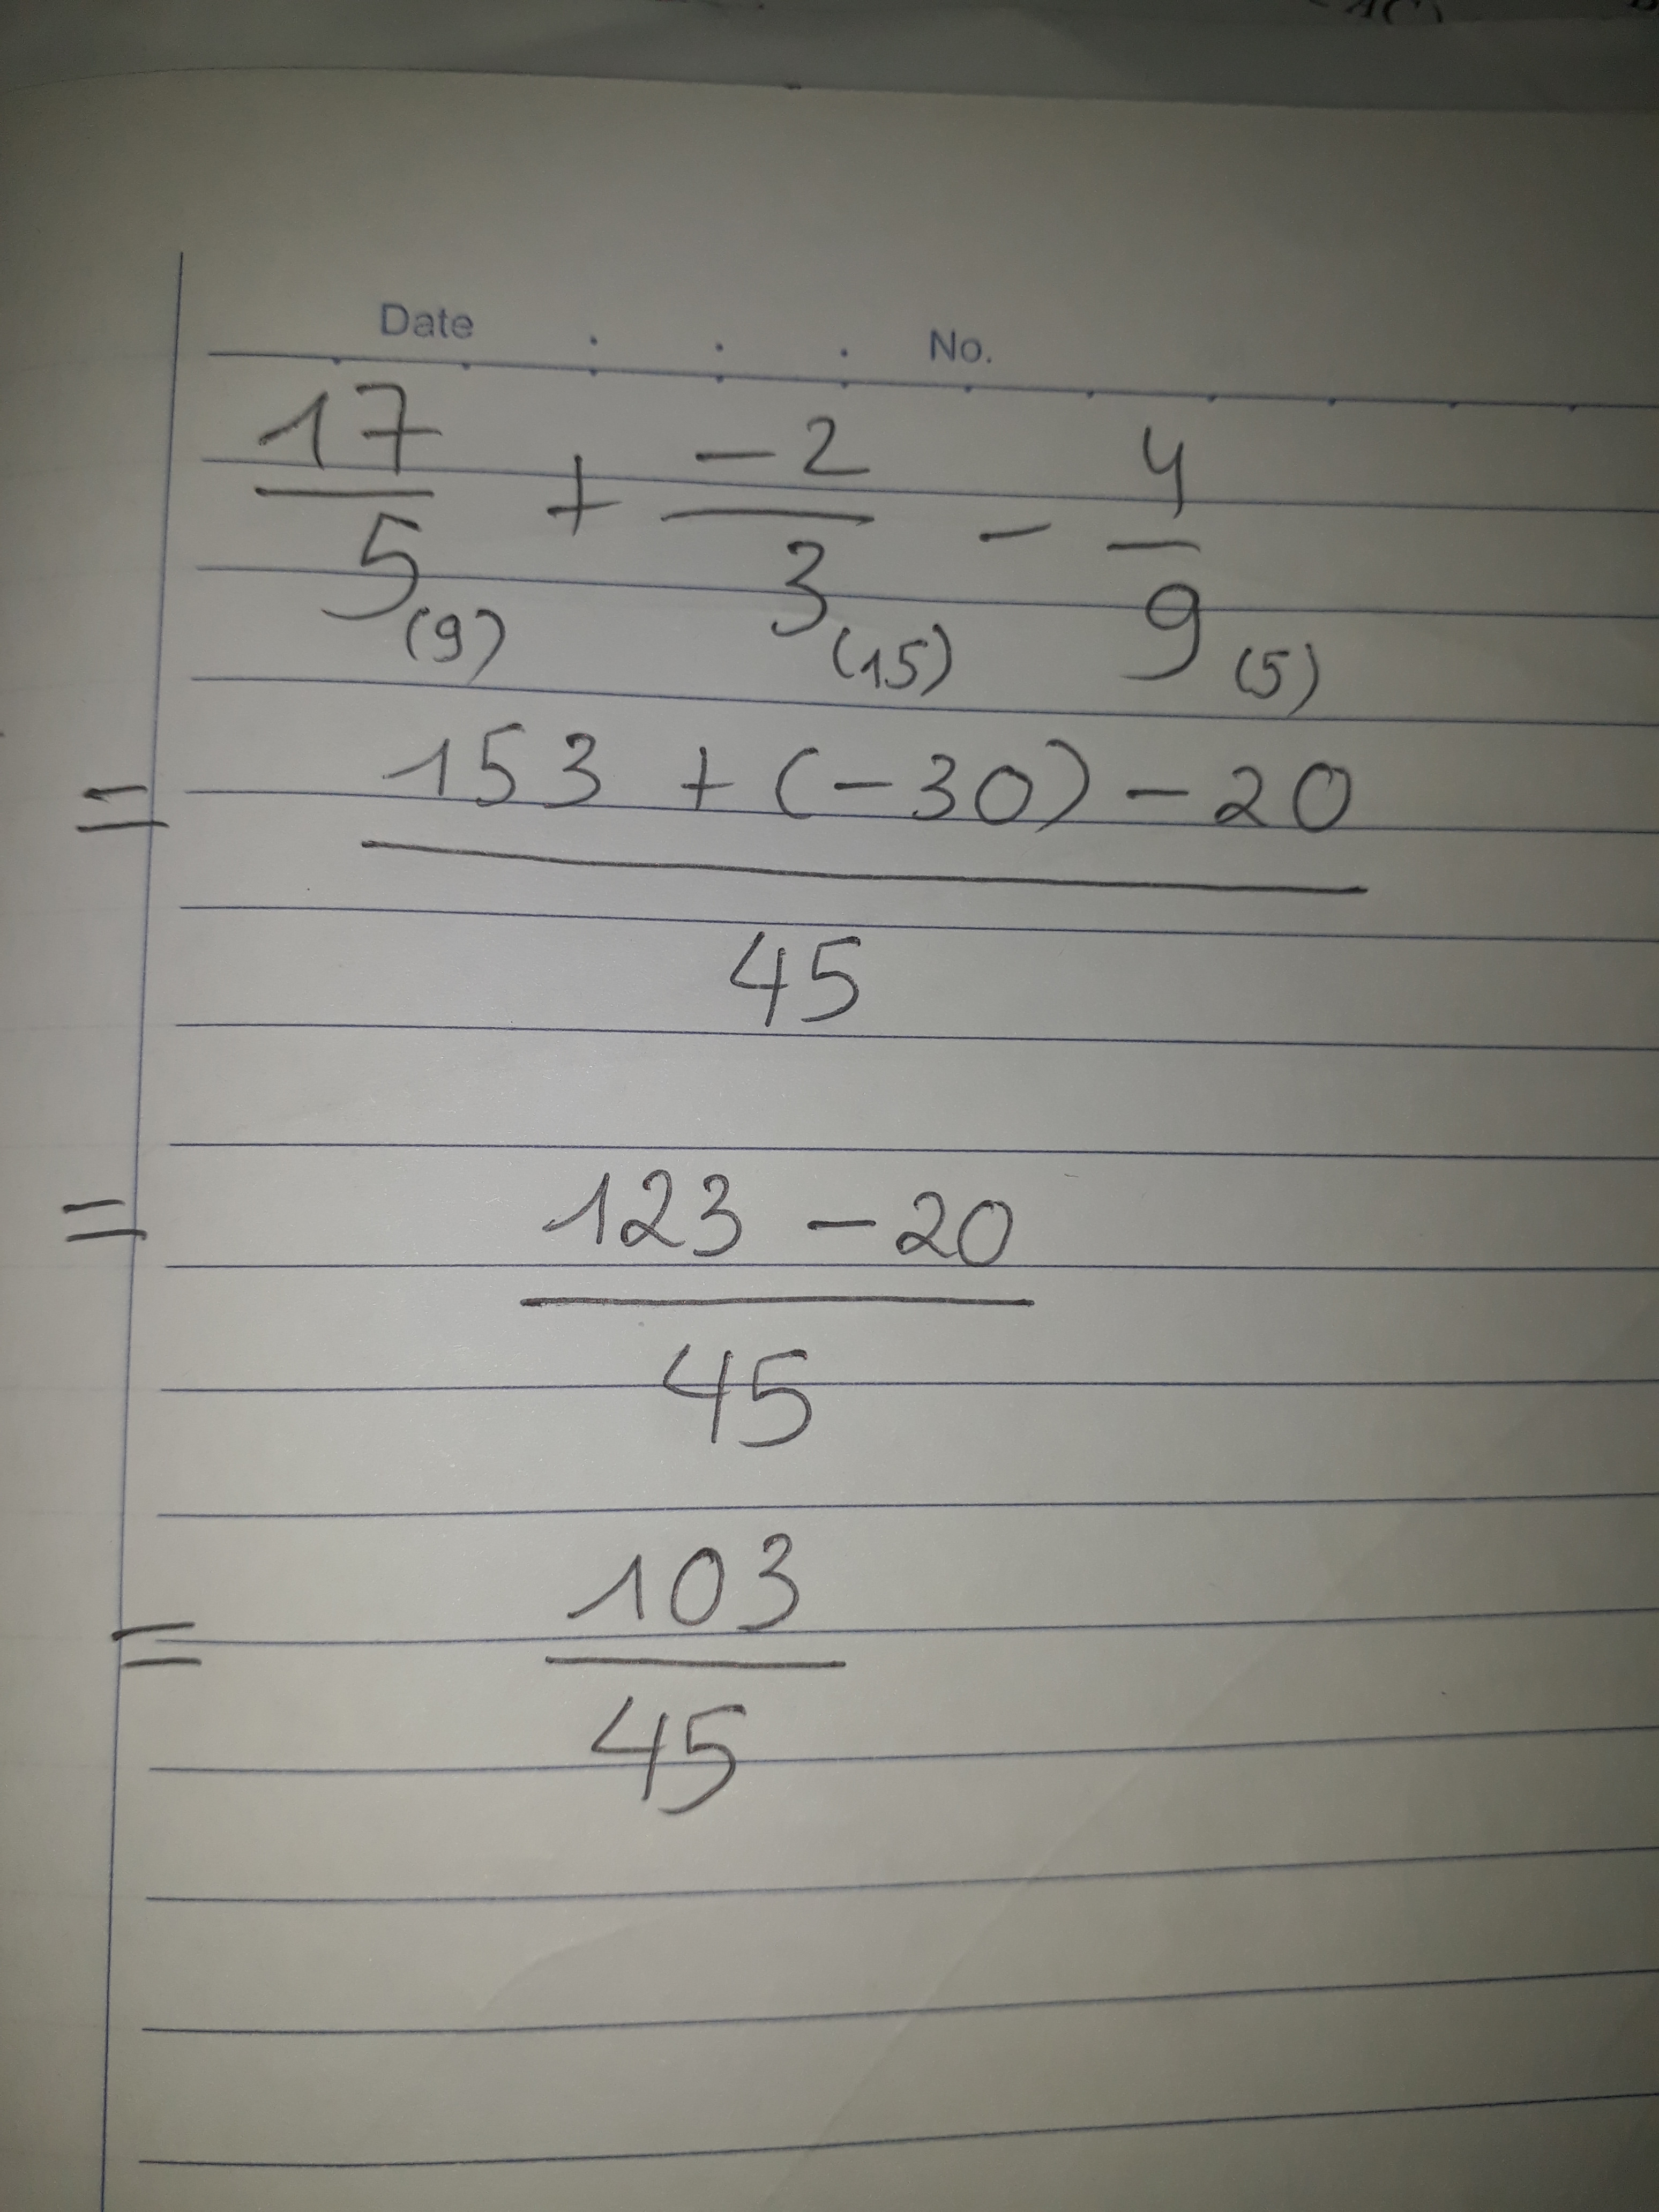 Date No.
17/5 (9) + -2/3 (15) - 4/9 (5)
= 153 + (-30) - 20 / 45
= 123 - 20 / 45
= 103 / 45